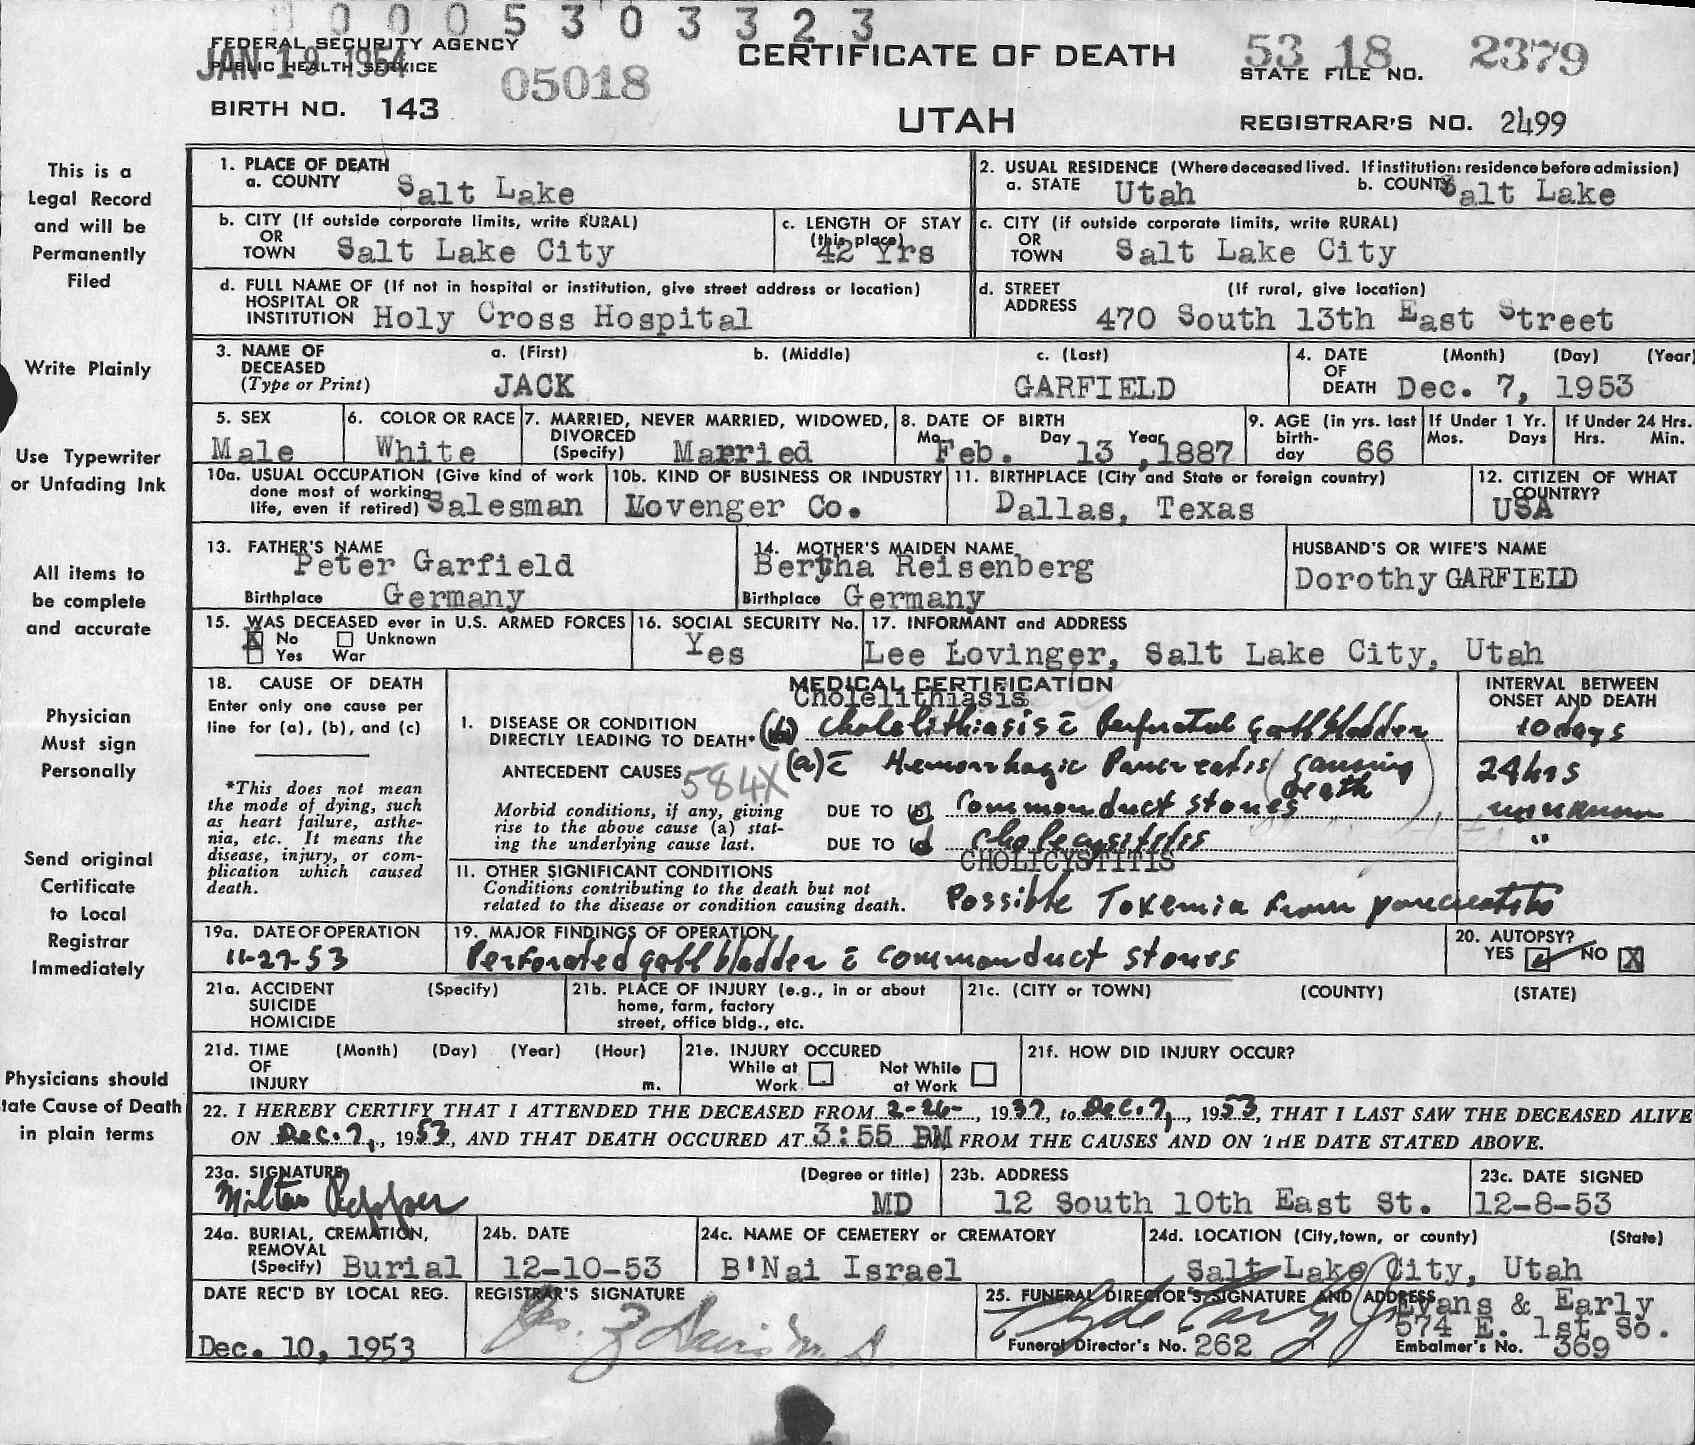 0005303323
FEDERAL SECURITY AGENCY
PUBLIC HEALTH SERVICE
JAN 19 1954
05018
BIRTH NO. 143
CERTIFICATE OF DEATH
UTAH
53 18 2379
STATE FILE NO.
REGISTRAR'S NO. 2499
This is a
Legal Record
and will be
Permanently
Filed
Write Plainly
Use Typewriter
or Unfading Ink
All items to
be complete
and accurate
Physician
Must sign
Personally
Send original
Certificate
to Local
Registrar
Immediately
Physicians should
tate Cause of Death
in plain terms
1. PLACE OF DEATH
a. COUNTY Salt Lake
2. USUAL RESIDENCE (Where deceased lived. If institution: residence before admission)
a. STATE Utah b. COUNTY Salt Lake
b. CITY (If outside corporate limits, write RURAL)
OR
TOWN Salt Lake City
c. LENGTH OF STAY
(this place)
42 Yrs
c. CITY (if outside corporate limits, write RURAL)
OR
TOWN Salt Lake City
d. FULL NAME OF (If not in hospital or institution, give street address or location)
HOSPITAL OR
INSTITUTION Holy Cross Hospital
d. STREET (If rural, give location)
ADDRESS 470 South 13th East Street
3. NAME OF a. (First) b. (Middle) c. (Last)
DECEASED
(Type or Print) JACK GARFIELD
4. DATE (Month) (Day) (Year)
OF
DEATH Dec. 7, 1953
5. SEX
Male
6. COLOR OR RACE
White
7. MARRIED, NEVER MARRIED, WIDOWED,
DIVORCED
(Specify) Married
8. DATE OF BIRTH
Mo. Day Year
Feb. 13, 1887
9. AGE (in yrs. last
birth-
day 66
If Under 1 Yr.
Mos. Days
If Under 24 Hrs.
Hrs. Min.
10a. USUAL OCCUPATION (Give kind of work
done most of working
life, even if retired) Salesman
10b. KIND OF BUSINESS OR INDUSTRY
Lovenger Co.
11. BIRTHPLACE (City and State or foreign country)
Dallas, Texas
12. CITIZEN OF WHAT
COUNTRY?
USA
13. FATHER'S NAME
Peter Garfield
Birthplace Germany
14. MOTHER'S MAIDEN NAME
Bertha Reisenberg
Birthplace Germany
HUSBAND'S OR WIFE'S NAME
Dorothy GARFIELD
15. WAS DECEASED ever in U.S. ARMED FORCES
X No Unknown
Yes War
16. SOCIAL SECURITY No.
Yes
17. INFORMANT and ADDRESS
Lee Lovinger, Salt Lake City, Utah
18. CAUSE OF DEATH
Enter only one cause per
line for (a), (b), and (c)
*This does not mean
the mode of dying, such
as heart failure, asthe-
nia, etc. It means the
disease, injury, or com-
plication which caused
death.
MEDICAL CERTIFICATION
Cholelithiasis
INTERVAL BETWEEN
ONSET AND DEATH
I. DISEASE OR CONDITION
DIRECTLY LEADING TO DEATH* (b) Cholelithiasis c̄ Perforated gall bladder 10 days
ANTECEDENT CAUSES 584X (a) c̄ Hemorrhagic Pancreatis (causing death) 24 hrs
Morbid conditions, if any, giving
rise to the above cause (a) stat-
ing the underlying cause last.
DUE TO (c) Common duct stones unknown
DUE TO (d) Cholecystitis "
CHOLICYSTITIS
II. OTHER SIGNIFICANT CONDITIONS
Conditions contributing to the death but not
related to the disease or condition causing death.
Possible Toxemia from pancreatitis
19a. DATE OF OPERATION
11-27-53
19. MAJOR FINDINGS OF OPERATION
Perforated gall bladder c̄ common duct stones
20. AUTOPSY?
YES NO X
21a. ACCIDENT (Specify)
SUICIDE
HOMICIDE
21b. PLACE OF INJURY (e.g., in or about
home, farm, factory
street, office bldg., etc.
21c. (CITY or TOWN) (COUNTY) (STATE)
21d. TIME (Month) (Day) (Year) (Hour)
OF
INJURY m.
21e. INJURY OCCURED
While at Not While
Work at Work
21f. HOW DID INJURY OCCUR?
22. I HEREBY CERTIFY THAT I ATTENDED THE DECEASED FROM 2-26-, 1937, to Dec. 7, 1953, THAT I LAST SAW THE DECEASED ALIVE
ON Dec. 7, 1953, AND THAT DEATH OCCURED AT 3:55 PM FROM THE CAUSES AND ON THE DATE STATED ABOVE.
23a. SIGNATURE (Degree or title)
Milton Pepper MD
23b. ADDRESS
12 South 10th East St.
23c. DATE SIGNED
12-8-53
24a. BURIAL, CREMATION,
REMOVAL
(Specify) Burial
24b. DATE
12-10-53
24c. NAME OF CEMETERY or CREMATORY
B'Nai Israel
24d. LOCATION (City, town, or county) (State)
Salt Lake City, Utah
DATE REC'D BY LOCAL REG.
Dec. 10, 1953
REGISTRAR'S SIGNATURE
25. FUNERAL DIRECTOR'S SIGNATURE AND ADDRESS
Clyde Early Jr
Evans & Early
574 E. 1st So.
Funeral Director's No. 262
Embalmer's No. 369